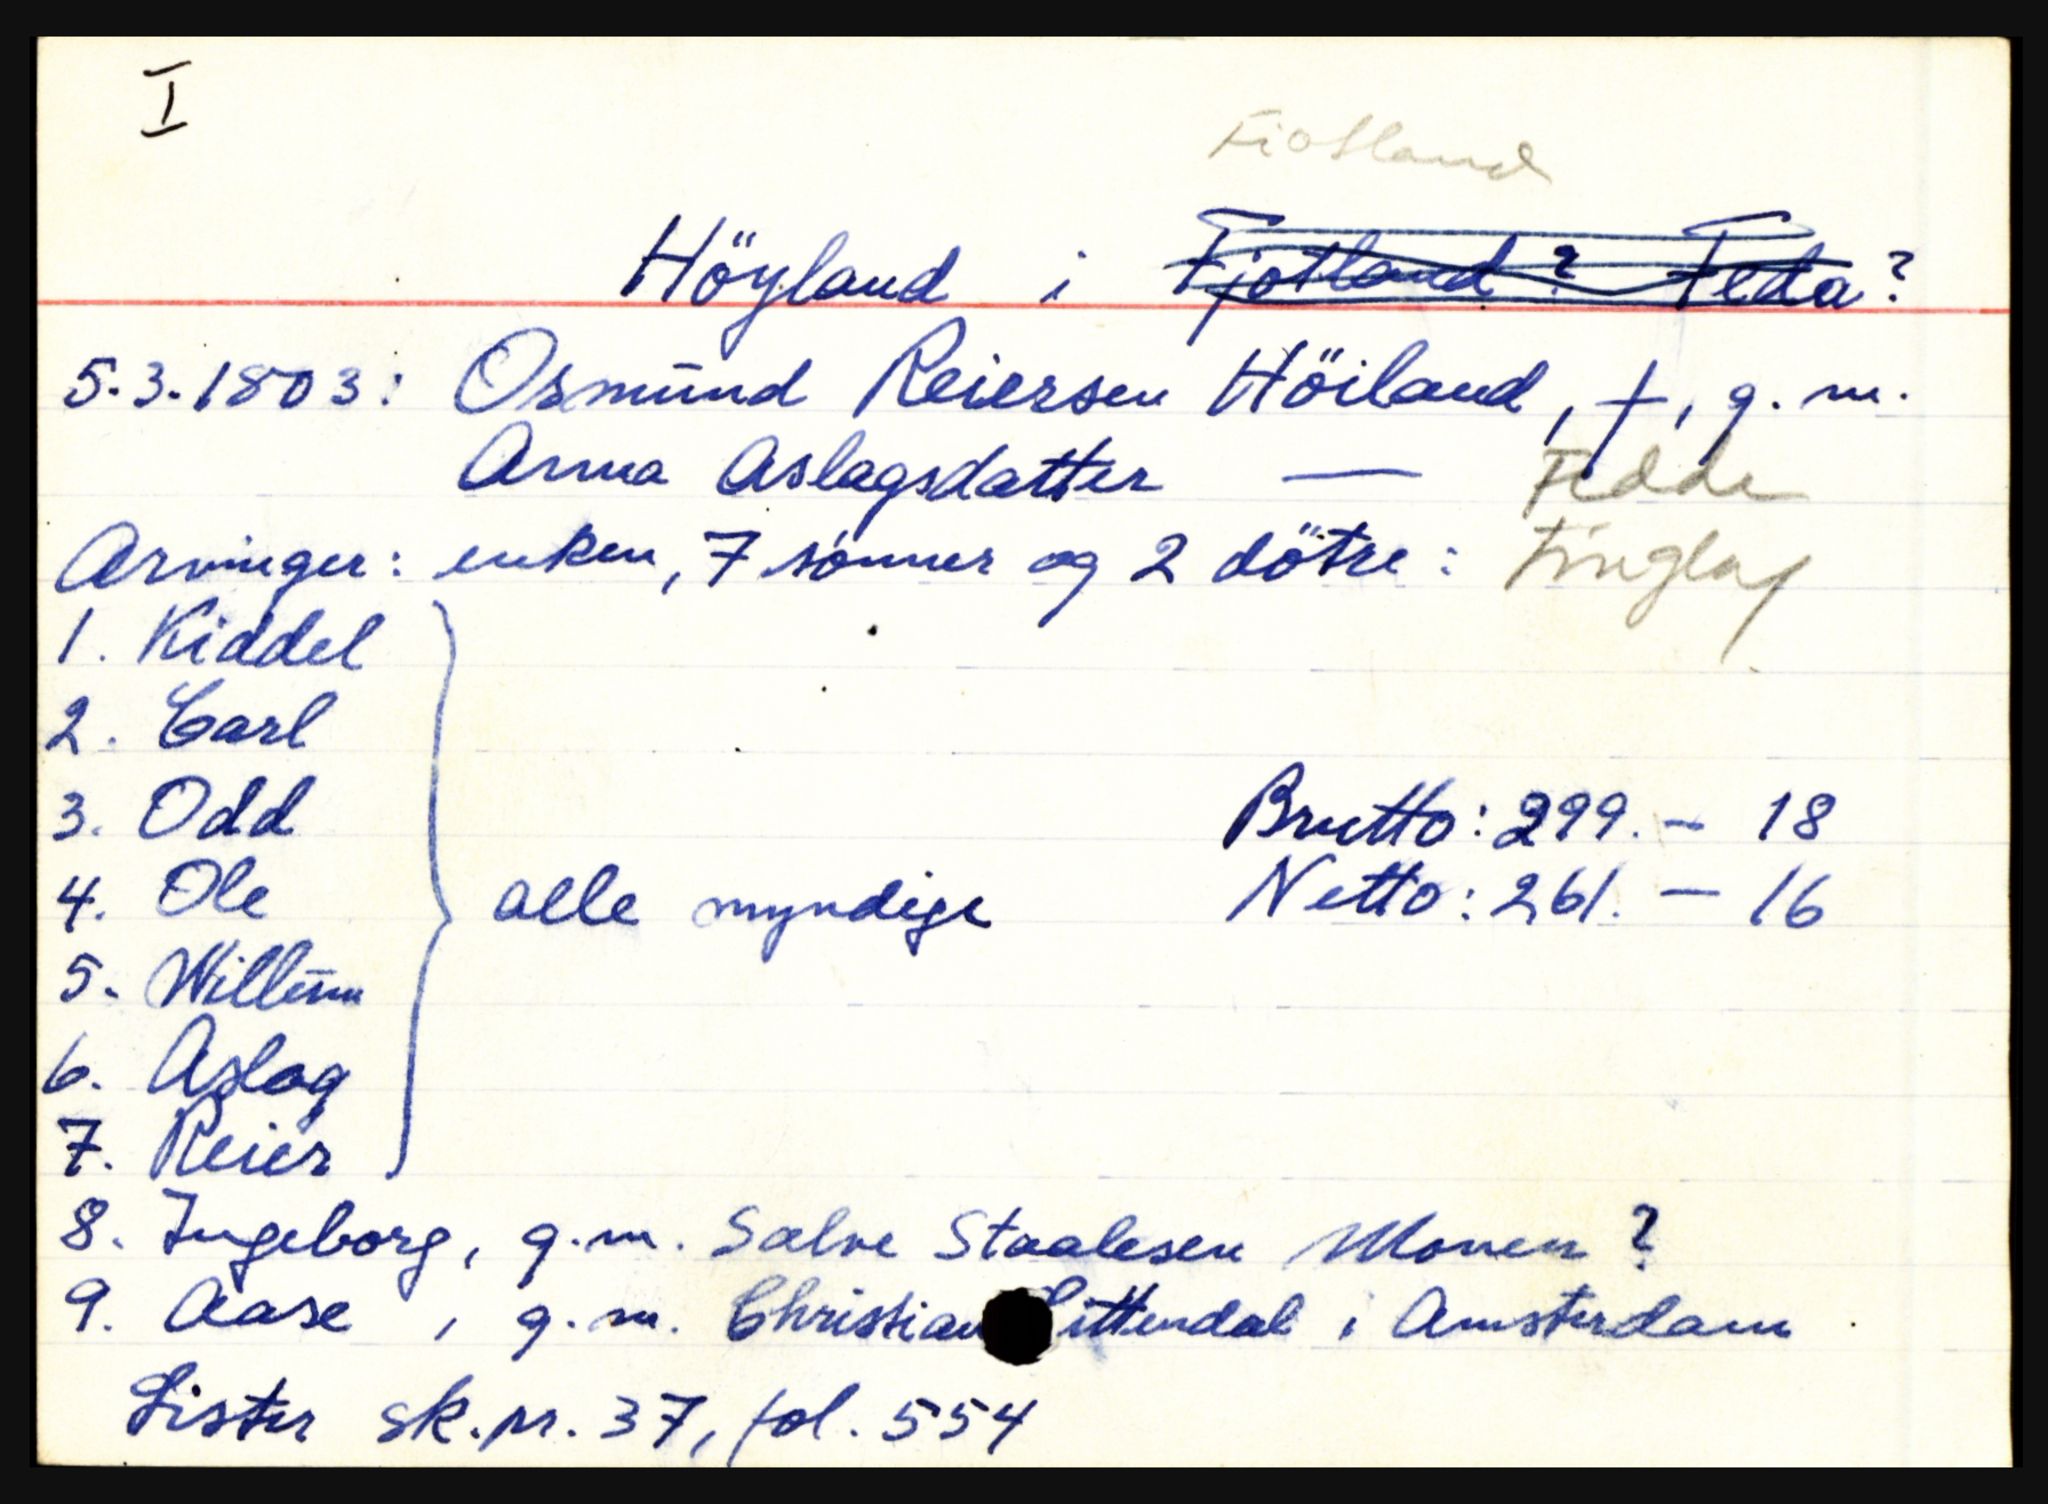 I
Fiotland
Höyland i Fjotland? Feda?
5.3.1803: Osmund Reiersen Höiland, †, g.m.
Anna Aslagsdatter — Fedde
Arvinger: enken, 7 sønner og 2 dötre: Tinglag
1. Kiddel
2. Carl
3. Odd
Brutto: 299.- 18
4. Ole alle myndige Netto: 261. - 16
5. Willum
6. Aslag
7. Reier
8. Ingeborg, g.m. Salve Staalesen Monen?
9. Aase, g.m. Christian ittendal i Amsterdam
Lister sk.pr. 37, fol. 554